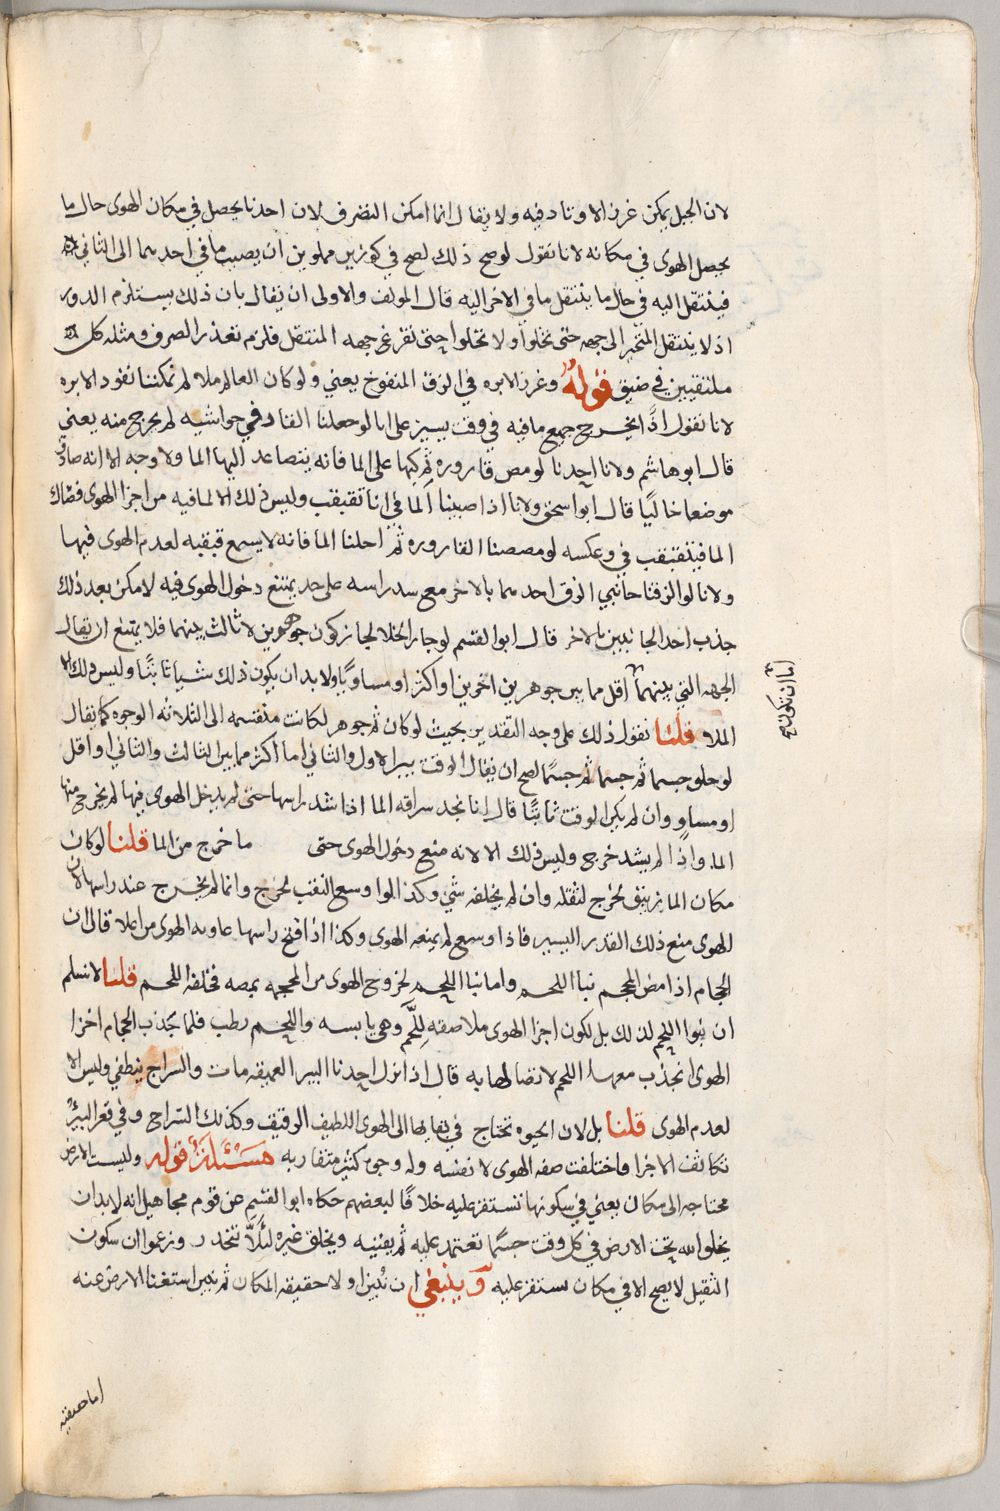 لان الجبل يمكن غرز الاوتاد فيه ولا يقال انما امكن التصرف لان احدنا يحصل في مكان الهوى حال ما
يحصل الهوى في مكانه لانا نقول لو صح ذلك لصح في كوزين مملوين ان يصب ما في احدهما الى الثاني
فينتقل اليه في حال ما ينتقل ما في الاخر اليه قال المولف والاولى ان يقال بان ذلك يستلزم الدور
اذ لا ينتقل المتحيز الى جهه حتى تخلوا ولا تخلوا حتى تفرغ جهه المنتقل فلزم تعذر الصرف ومثله كل
ملتقيين في ضيق قوله وغرز الابره في الزق المنفوخ يعني ولو كان العالم ملا لم تمكننا نفود الابره
لانا نقول اذًا يخرج جميع ما فيه في وقت يسير على انا لو جعلنا القار في حواشيه لم يخرج منه يعني
قال ابو هاشم ولانا احدنا لو مص قاروره ثم كبها على الما فانه يتصاعد اليها الما ولا وجه الا انه صادف
موضعا خاليًا قال ابو اسحق ولانا اذا صببنا الما في انا تقبقب وليس ذلك الا لما فيه من اجزا الهوى فصاك
الما فيتقبقب في وعكسه لو مصصنا القاروره ثم احلنا الما فانه لا يسمع قبقبه لعدم الهوى فيها
ولانا لو الزقنا جانبي الزق احدهما بالاخر مع سد راسه على حد يمتنع دخول الهوى فيه لامكن بعد ذلك
جذب احد الجانبين بالاخر قال ابو القسم لو جاز الخلا لجاز كون جوهرين لا ثالث بينهما فلا يمتنع ان يقال
الجهه التي بينهما اقل مما بين جوهرين اخوين او اكثر او مساويًا ولا بد ان يكون ذلك شيا ثابتًا وليس ذلك الا
الملا قلنا نقول ذلك على وجه التقدير بحيث لو كان ثم جوهر لكانت منقسمه الى الثلاثه الوجوه كما يقال
لو خلق جسما ثم جسما ثم جسمًا لصح ان يقال الوقت بين الاول والثاني اما اكثر مما بين الثالث والثاني او اقل
او مساوٍ وان لم يكن الوقت ثابتًا قال انا نجد سراقه الما اذا شد راسها حتى لم يدخل الهوى فيها لم يخرج منها
الما واذا لم يشد خرج وليس ذلك الا لانه منع دخول الهوى حتى ما خرج من الما قلنا لو كان
مكان الما زيبق لخرج لثقله وان لم يخلفه شي وكذا لو اوسع الثقب لخرج وانما لم يخرج عند راسها لان
الهوى منع ذلك القدر اليسير فاذا وسع لم يمنعه الهوى وكذا اذا فتح راسها عاونه الهوى من اعلا قال ان
الحجام اذا مص المحجم نبا اللحم وما نبا اللحم لخروج الهوى من المحجمه بمصه فخلفه اللحم قلنا لا نسلم
ان نبوا اللحم لذلك بل لكون اجزا الهوى ملاصقه لِلَّحم وهي يابسه واللحم رطب فلما جذب الحجام اجزا
الهوى انجذب معها اللحم لاتصالها به قال اذا نزل احدنا البير العميقه مات والسراج ينطفي وليس الا
لعدم الهوى قلنا بل لان الحيوه تحتاج في بقايها الى الهوى اللطيف الرقيق وكذلك السراج وفي قعر البير
تكاثف الاجزا فاختلفت صفه الهوى لا نفسه وله وجوه كثير متقاربه مسئلة قوله وليست الارض
محتاجه الى مكان يعني في سكونها تستقر عليه خلافًا لبعضهم حكاه ابو القسم عن قوم مجاهيل انه لا بد ان
يخلق الله تحت الارض في كل وقت جسمًا تعتمد عليه ثم يفنيه ويخلق غيره لئلا تنحدر وزعموا ان سكون
الثقيل لا يصح الا في مكان يستقر عليه وينبغي ان نبين اولا حقيقه المكان ثم نبين استغنا الارض عنه
اما حقيقه